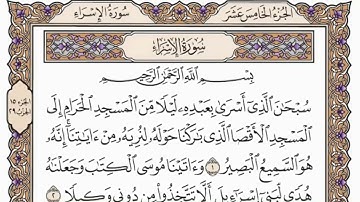 الجزء الخامس عشر
سورة الإسراء
سُورَةُ الإِسْرَاءِ
بِسْمِ اللَّهِ الرَّحْمَٰنِ الرَّحِيمِ
سُبْحَٰنَ الَّذِي أَسْرَىٰ بِعَبْدِهِ لَيْلًا مِّنَ الْمَسْجِدِ الْحَرَامِ إِلَى
الْمَسْجِدِ الْأَقْصَا الَّذِي بَٰرَكْنَا حَوْلَهُ لِنُرِيَهُ مِنْ ءَايَٰتِنَا إِنَّهُ
هُوَ السَّمِيعُ الْبَصِيرُ ١ وَءَاتَيْنَا مُوسَى الْكِتَٰبَ وَجَعَلْنَٰهُ
هُدًى لِّبَنِي إِسْرَٰٓءِيلَ أَلَّا تَتَّخِذُوا مِن دُونِي وَكِيلًا ٢
الجزء ١٥
الحزب ٢٩